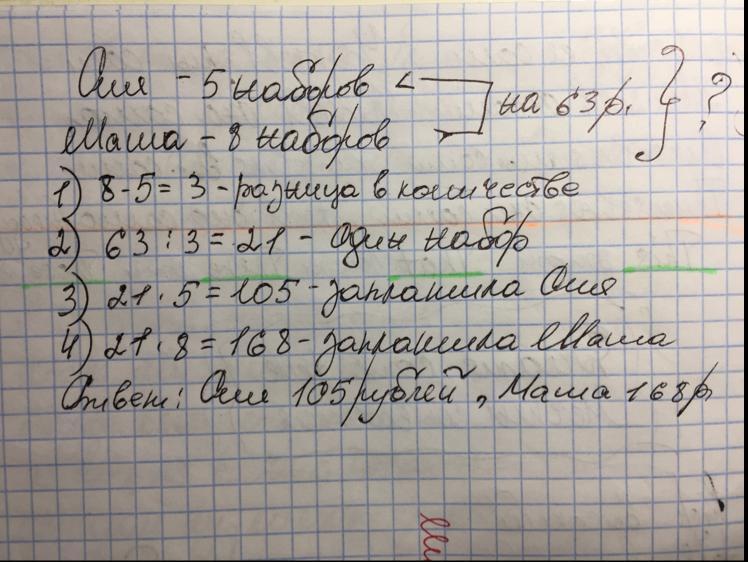 Оля - 5 наборов < на 63 р. } ?
Маша - 8 наборов
1) 8-5=3 - разница в количестве
2) 63:3=21 - один набор
3) 21·5=105 - заплатила Оля
4) 21·8=168 - заплатила Маша
Ответ: Оля 105 рублей, Маша 168 р.